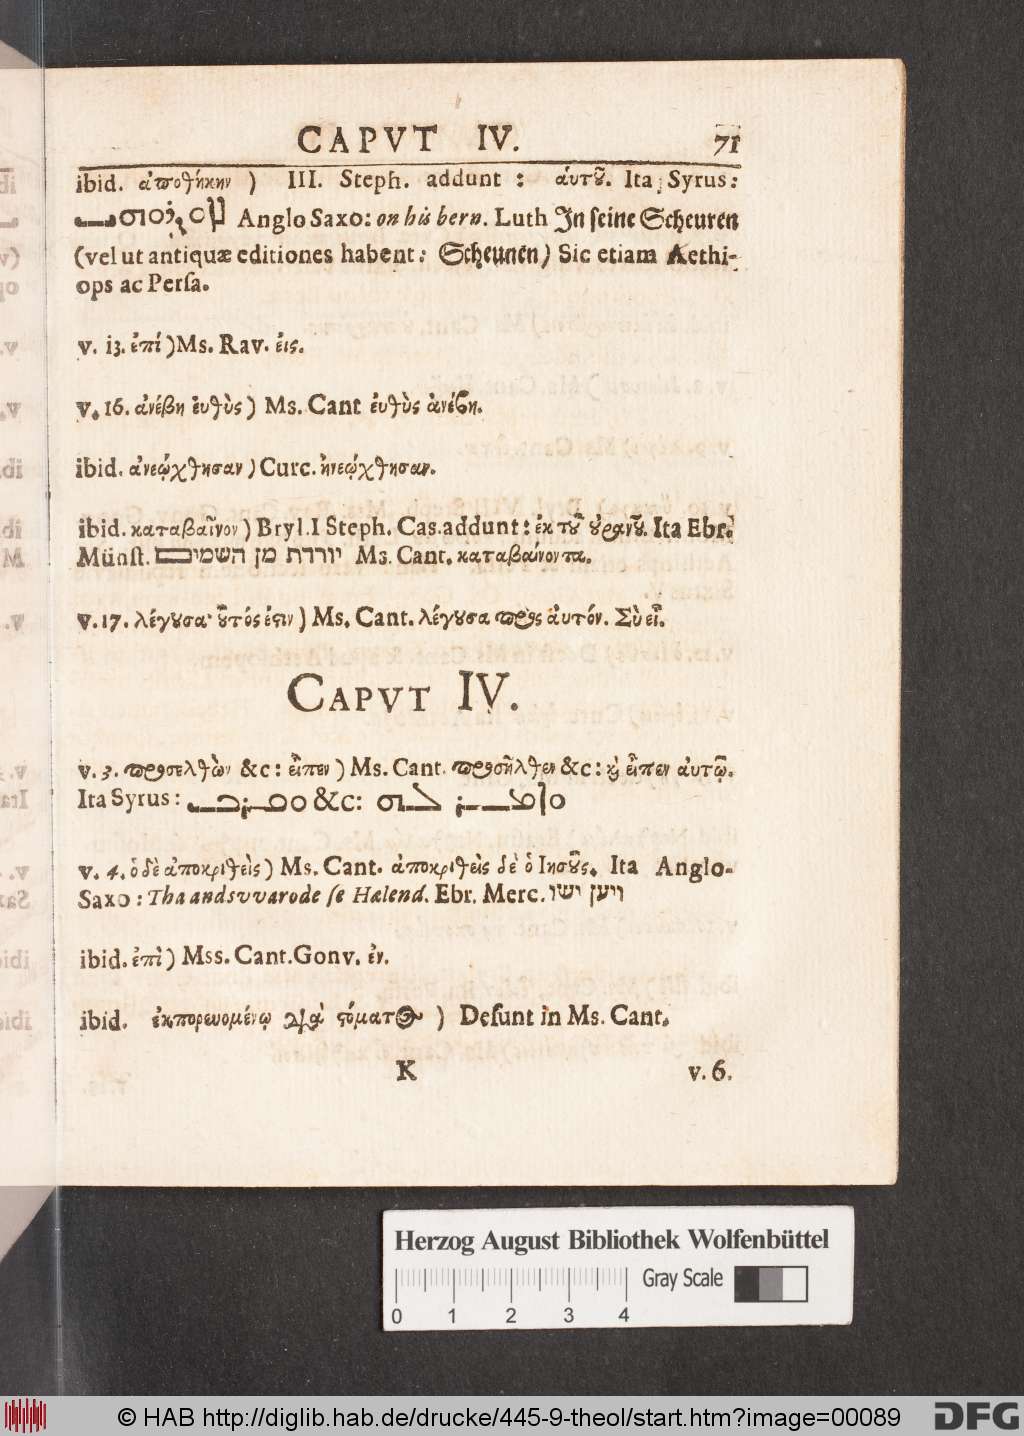 CAPVT IV. 71
ibid. ἀποθήκην ) III. Steph. addunt : ἁυτȣ͂. Ita Syrus:
Anglo Saxo: on his bern. Luth In seine Scheuren
(vel ut antiquæ editiones habent: Scheunen) Sic etiam Aethi-
ops ac Persa.
v. 13. ἐπί )Ms. Rav. ἐις.
v. 16. ἀνέβη ἐυθὺς ) Ms. Cant ἐυθὺς ἀνέβη.
ibid. ἀνεῴχθησαν ) Curc. ἠνεῴχθησαν.
ibid. καταβαῖνον ) Bryl. I Steph. Cas. addunt: ἐκ τȣ͂ ȣ̓ρανȣ͂. Ita Ebr.
Münst. יורדת מן השמים Ms. Cant. καταβαίνοντα.
v. 17. λέγȣσα· ȣ͗τός ἐϛιν ) Ms. Cant. λέγȣσα πρὸς ἀυτόν. Σὺ εἶ.
CAPVT IV.
v. 3. προσελθὼν &c: εἶπεν ) Ms. Cant. προσῆλθεν &c: ϗ εἶπεν αυτῷ.
Ita Syrus: &c:
v. 4. ὁ δὲ ἀποκριθεὶς ) Ms. Cant. ἀποκριθεὶς δὲ ὁ Ιησȣ͂ς. Ita Anglo-
Saxo: Tha andsvvarode se Hælend. Ebr. Merc. ויען ישו
ibid. ἐπὶ ) Mss. Cant. Gonv. ἐν.
ibid. ἐκπορευομένῳ διὰ ϛόματος ) Desunt in Ms. Cant.
K v. 6.
Herzog August Bibliothek Wolfenbüttel
Gray Scale
0 1 2 3 4
© HAB http://diglib.hab.de/drucke/445-9-theol/start.htm?image=00089 DFG